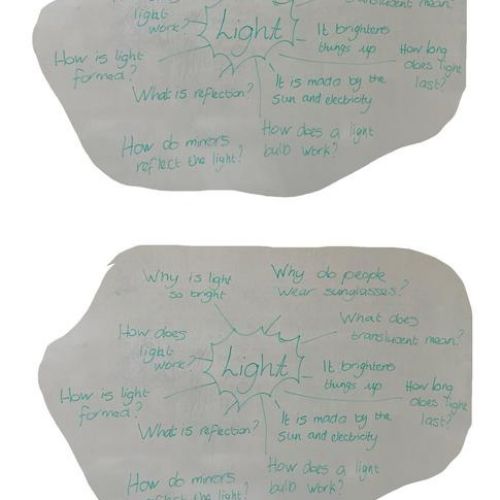 translucent mean
light
work?
Light
It brightens
things up
How long
does light
last?
How is light
formed?
What is reflection?
It is made by the
sun and electricity
How do mirrors
reflect the light?
How does a light
bulb work?
Why is light
so bright
Why do people
wear sunglasses?
What does
translucent mean?
How does
light
work?
Light
It brightens
things up
How long
does light
last?
How is light
formed?
What is reflection?
It is made by the
sun and electricity
How do mirrors
reflect the light?
How does a light
bulb work?